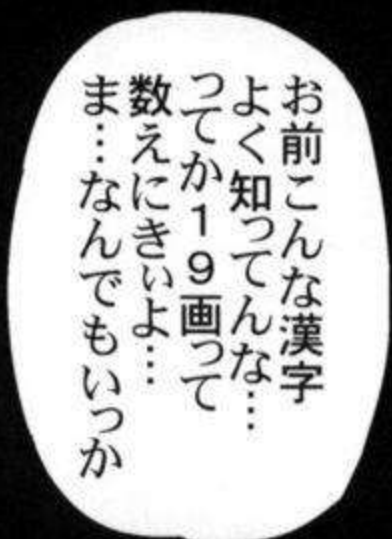 お前こんな漢字
よく知ってんな…
ってか19画って
数えにきぃよ…
ま…なんでもいっか